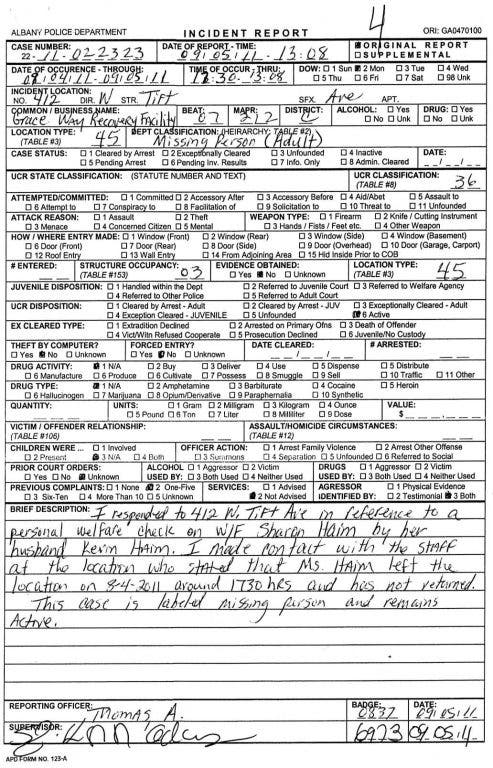 4
ALBANY POLICE DEPARTMENT INCIDENT REPORT ORI: GA0470100
CASE NUMBER: 22- 11-022323 DATE OF REPORT - TIME: 09, 05, 11 - 13:08 ORIGINAL REPORT SUPPLEMENTAL
DATE OF OCCURENCE - THROUGH: 08, 04, 11 - 09, 05, 11 TIME OF OCCUR - THROUGH: 17:30-13:08 DOW: 1 Sun 2 Mon 3 Tue 4 Wed
5 Thu 6 Fri 7 Sat 98 Unk
INCIDENT LOCATION:
NO. 412 DIR. W STR. Tift SFX. Ave APT.
COMMON / BUSINESS NAME: Grace Way Recovery Facility BEAT: 07 MAPR: 212 DISTRICT: C ALCOHOL: Yes No Unk DRUG: Yes No Unk
LOCATION TYPE: (TABLE #3) 45 DEPT CLASSIFICATION: (HEIRARCHY: TABLE #2) Missing Person (Adult)
CASE STATUS: 1 Cleared by Arrest 2 Exceptionally Cleared 3 Unfounded 4 Inactive DATE:
5 Pending Arrest 6 Pending Inv. Results 7 Info. Only 8 Admin. Cleared __/__/__
UCR STATE CLASSIFICATION: (STATUTE NUMBER AND TEXT) UCR CLASSIFICATION: (TABLE #8) 36
ATTEMPTED/COMMITTED: 1 Committed 2 Accessory After 3 Accessory Before 4 Aid/Abet 5 Assault to
6 Attempt to 7 Conspiracy to 8 Facilitation of 9 Solicitation to 10 Threat to 11 Unfounded
ATTACK REASON: 1 Assault 2 Theft WEAPON TYPE: 1 Firearm 2 Knife / Cutting Instrument
3 Menace 4 Concerned Citizen 5 Mental 3 Hands / Fists / Feet etc. 4 Other Weapon
HOW / WHERE ENTRY MADE: 1 Window (Front) 2 Window (Rear) 3 Window (Side) 4 Window (Basement)
6 Door (Front) 7 Door (Rear) 8 Door (Side) 9 Door (Overhead) 10 Door (Garage, Carport)
12 Roof Entry 13 Wall Entry 14 From Adjoining Area 15 Hid Inside Prior to COB
# ENTERED: STRUCTURE OCCUPANCY: (TABLE #153) 03 EVIDENCE OBTAINED: Yes No Unknown LOCATION TYPE: (TABLE #3) 45
JUVENILE DISPOSITION: 1 Handled within the Dept 2 Referred to Juvenile Court 3 Referred to Welfare Agency
4 Referred to Other Police 5 Referred to Adult Court
UCR DISPOSITION: 1 Cleared by Arrest - Adult 2 Cleared by Arrest - JUV 3 Exceptionally Cleared - Adult
4 Exception Cleared - JUVENILE 5 Unfounded 6 Active
EX CLEARED TYPE: 1 Extradition Declined 2 Arrested on Primary Ofns 3 Death of Offender
4 Vict/Witn Refused Cooperate 5 Prosecution Declined 6 Juvenile/No Custody
THEFT BY COMPUTER? Yes No Unknown FORCED ENTRY? Yes No Unknown DATE CLEARED: __/__/__ # ARRESTED:
DRUG ACTIVITY: 1 N/A 2 Buy 3 Deliver 4 Use 5 Dispense 5 Distribute
6 Manufacture 6 Produce 6 Cultivate 7 Possess 8 Smuggle 9 Sell 10 Traffic 11 Other
DRUG TYPE: 1 N/A 2 Amphetamine 3 Barbiturate 4 Cocaine 5 Heroin
6 Hallucinogen 7 Marijuana 8 Opium/Derivative 9 Paraphernalia 10 Synthetic
QUANTITY: UNITS: 1 Gram 2 Milligram 3 Kilogram 4 Ounce VALUE:
5 Pound 6 Ton 7 Liter 8 Milliliter 9 Dose $
VICTIM / OFFENDER RELATIONSHIP: (TABLE #106) ASSAULT/HOMICIDE CIRCUMSTANCES: (TABLE #12)
CHILDREN WERE ... 1 Involved OFFICER ACTION: 1 Arrest Family Violence 2 Arrest Other Offense
2 Present 3 N/A 4 Both 3 Summons 4 Separation 5 Unfounded 6 Referred to Social
PRIOR COURT ORDERS: Yes No Unknown ALCOHOL USED BY: 1 Aggressor 2 Victim 3 Both Used 4 Neither Used DRUGS USED BY: 1 Aggressor 2 Victim 3 Both Used 4 Neither Used
PREVIOUS COMPLAINTS: 1 None 2 One-Five SERVICES: 1 Advised AGRESSOR 1 Physical Evidence
3 Six-Ten 4 More Than 10 5 Unknown 2 Not Advised IDENTIFIED BY: 2 Testimonial 3 Both
BRIEF DESCRIPTION: I responded to 412 W. Tift Ave in reference to a
personal welfare check on W/F Sharon Haim by her
husband Kevin Haim. I made contact with the staff
at the location who stated that Ms. Haim left the
location on 8-4-2011 around 1730 hrs and has not returned.
This case is labeled missing person and remains
Active.
REPORTING OFFICER: Thomas A. BADGE: 0837 DATE: 09, 05, 11
SUPERVISOR: 6973 09, 05, 11
APD FORM NO. 123-A